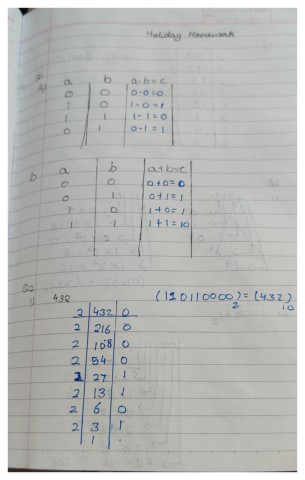 Holiday Homework
Q1
a) a b a-b=c
0 0 0-0=0
1 0 1-0=1
1 1 1-1=0
0 1 0-1=1
b a b a+b=c
0 0 0+0=0
0 1 0+1=1
1 0 1+0=1
1 1 1+1=10
Q2
1) 432 (110110000)2=(432)10
2 432 0
2 216 0
2 108 0
2 54 0
2 27 1
2 13 1
2 6 0
2 3 1
1